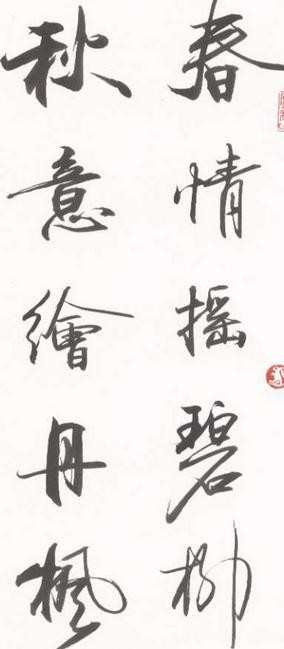 春情摇碧柳
秋意繪丹楓